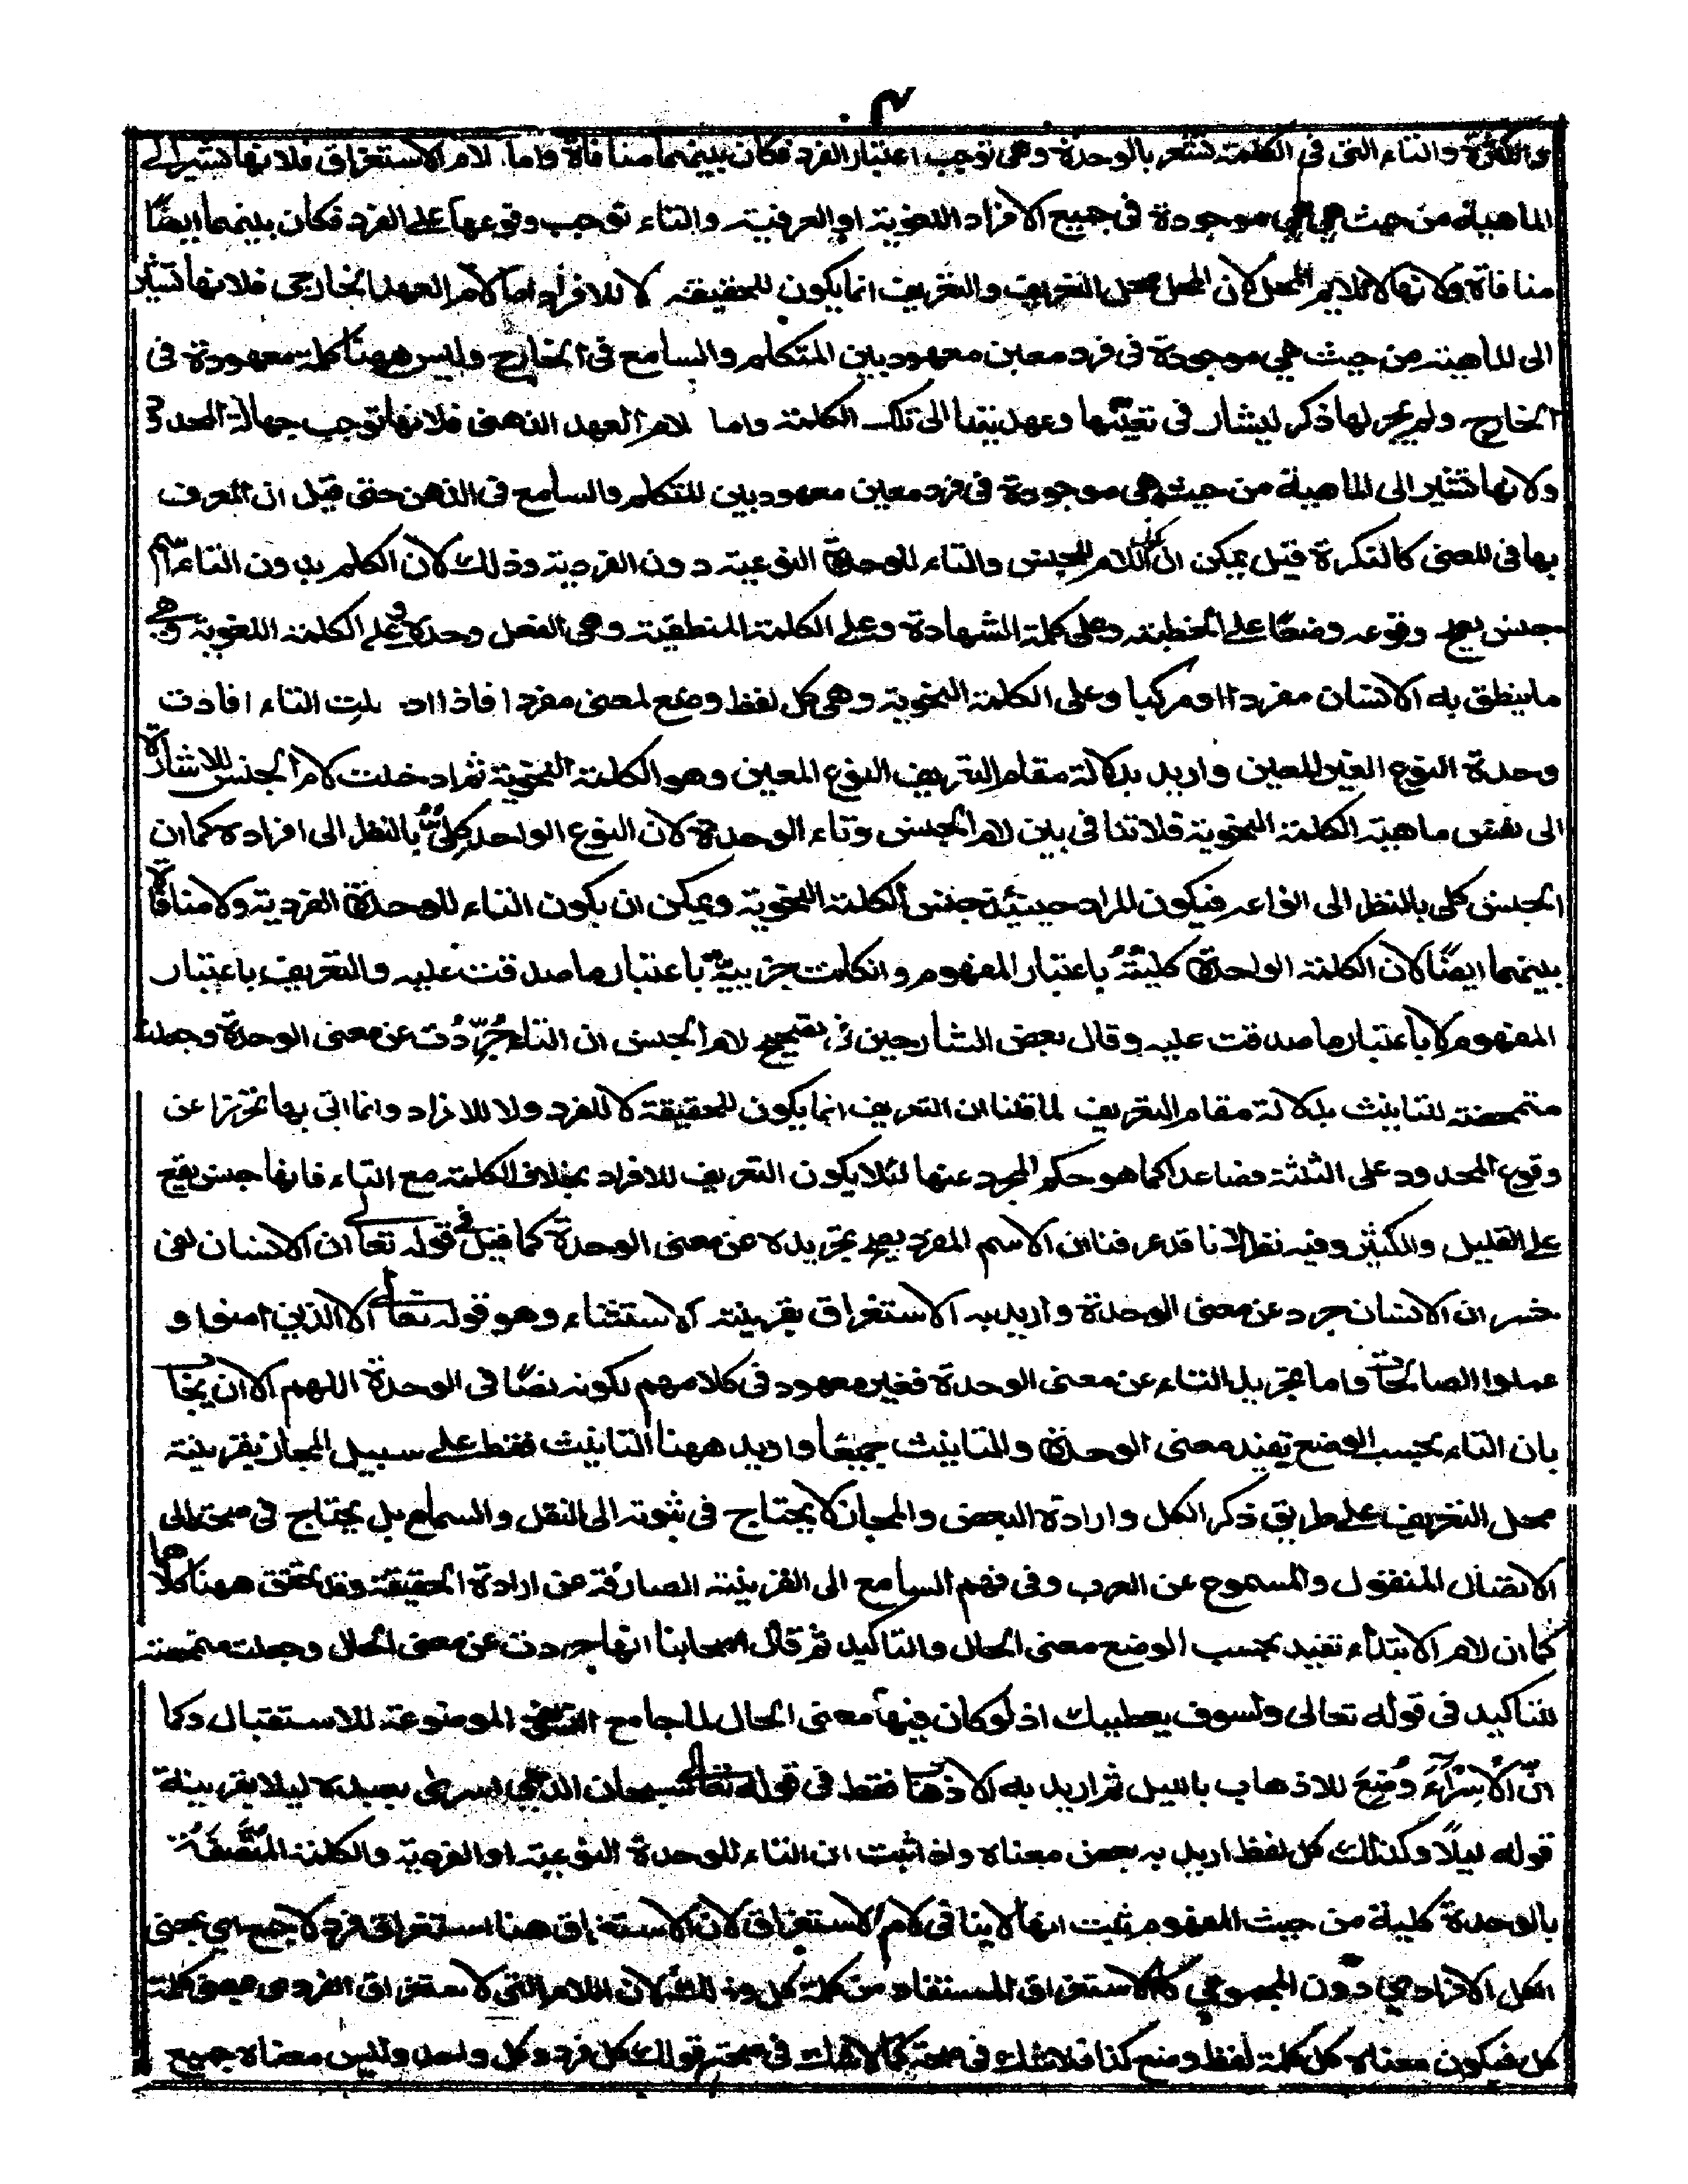 ٣
والكثرة والتاء التى فى الكلمة تشعر بالوحدة وهى توجب اعتبار الفرد فكان بينهما منافاة واما لام الاستغراق فلانها تشير الى
الماهية من حيث هى هى موجودة فى جميع الافراد اللغوية او العرفية والتاء توجب وقوعها على الفرد فكان بينهما ايضًا
منافاة ولانها لا تلايم المحل لان المحل محل التعريف والتعريف انما يكون للحقيقة لا للافراد اما لام العهد الخارجى فلانها تشير
الى الماهية من حيث هى موجودة فى فرد معين معهود بين المتكلم والسامع فى الخارج وليس ههنا كلمة معهودة فى
الخارج ولم يجر لها ذكر ليشار فى تعينها وعهديتها الى تلك الكلمة واما لام العهد الذهنى فلانها توجب جهالة المحدود
ولانها تشير الى الماهية من حيث هى موجودة فى فرد معين معهود بين المتكلم والسامع فى الذهن حتى قيل ان المعرف
بها فى المعنى كالنكرة قيل يمكن ان يكون اللام للجنس والتاء للوحدة النوعية دون الفردية وذلك لان الكلم بدون التاء اسم
جنس يصح وقوعه وضعًا على الخطبة وعلى كلمة الشهادة وعلى الكلمة المنطقية وهى الفعل وحده وعلى الكلمة اللغوية وهى
ما ينطق به الانسان مفردا او مركبا وعلى الكلمة النحوية وهى كل لفظ وضع لمعنى مفرد فاذا اد يلت التاء افادت
وحدة النوع الغير المعين واريد بدلالة مقام التعريف النوع المعين وهو الكلمة النحوية ثم ادخلت لام الجنس للاشارة
الى نفس ماهية الكلمة النحوية فلا تنافى بين لام الجنس وتاء الوحدة لان النوع الواحد كلىٌّ بالنظر الى افراده كما ان
الجنس كلى بالنظر الى انواعه فيكون المراد حينئذ جنس الكلمة النحوية ويمكن ان يكون التاء للوحدة الفردية ولا منافاة
بينهما ايضًا لان الكلمة الواحدة كليةٌ باعتبار المفهوم وانكانت جزييةً باعتبار ما صدقت عليه والتعريف باعتبار
المفهوم لا باعتبار ما صدقت عليه وقال بعض الشارحين فى تصحيح لام الجنس ان التاء جُرِّدت عن معنى الوحدة وجعلت
متمحضة للتانيث بدلالة مقام التعريف لما قلنا ان التعريف انما يكون للحقيقة لا للفرد ولا للافراد وانما اتى بها تحرزا عن
وقوع المحدود على الثلثة فصاعدا كما هو حكم المجرد عنها لئلا يكون التعريف للافراد بخلاف الكلمة مع التاء فانها جنس يقع
على القليل والكثير وفيه نظر لانا قد عرفنا ان الاسم المفرد يصح تجريده عن معنى الوحدة كما قيل فى قوله تعالى ان الانسان لفى
خسر ان الانسان جرد عن معنى الوحدة واريد به الاستغراق بقرينة الاستثناء وهو قوله تعالى الا الذين امنوا و
عملوا الصالحات واما تجريد التاء عن معنى الوحدة فغير معهود فى كلامهم لكونه نصًا فى الوحدة اللهم الا ان يجاب
بان التاء بحسب الوضع تفيد معنى الوحدة والتانيث جميعًا واريد ههنا التانيث فقط على سبيل المجاز بقرينة
محل التعريف على طريق ذكر الكل وارادة البعض والمجاز لا يحتاج فى ثبوته الى النقل والسماع بل يحتاج فى صحته الى
الاتصال المنقول والمسموع عن العرب وفى فهم السامع الى القرينة الصارفة عن ارادة الحقيقة وقد تحقق ههنا كلاهما
كما ان لام الابتداء تفيد بحسب الوضع معنى الحال والتاكيد ثم قال اصحابنا انها جردت عن معنى الحال وجعلت متمحضة
للتاكيد فى قوله تعالى ولسوف يعطيك اذ لو كان فيها معنى الحال لما جامع الموضوعة للاستقبال وكما
انّ الاِسْرَآءَ وُضِعَ للاذهاب بالليل ثم اريد به الاذهاب فقط فى قوله تعالى سبحان الذى اسرى بعبده ليلا بقرينة
قوله ليلًا وكذلك كل لفظ اريد به بعض معناه واذا ثبت ان التاء للوحدة النوعية او الفردية والكلمة المتّصفَةُ
بالوحدة كلية من حيث المفهوم ثبت انها لا ينافى لام الاستغراق لان الاستغراق هنا استغراق فرد لا جمع اى بمعنى
الكل الافرادى دون المجموعى كالاستغراق المستفاد من كلمة كل وذلك لان اللام التى لاستغراق الفرد هى بمعنى كلمة
كل فيكون معناه كل كلمة لفظ وضع كذا فلا شك فى صحته كما لا شك فى صحة قولك كل فرد وكل واحد وليس معناه جميع